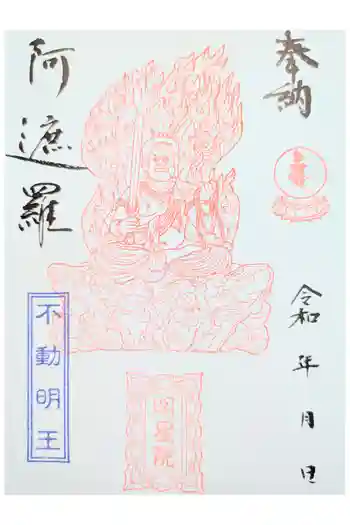 奉納
令和 年 月 日
阿遮羅
不動明王